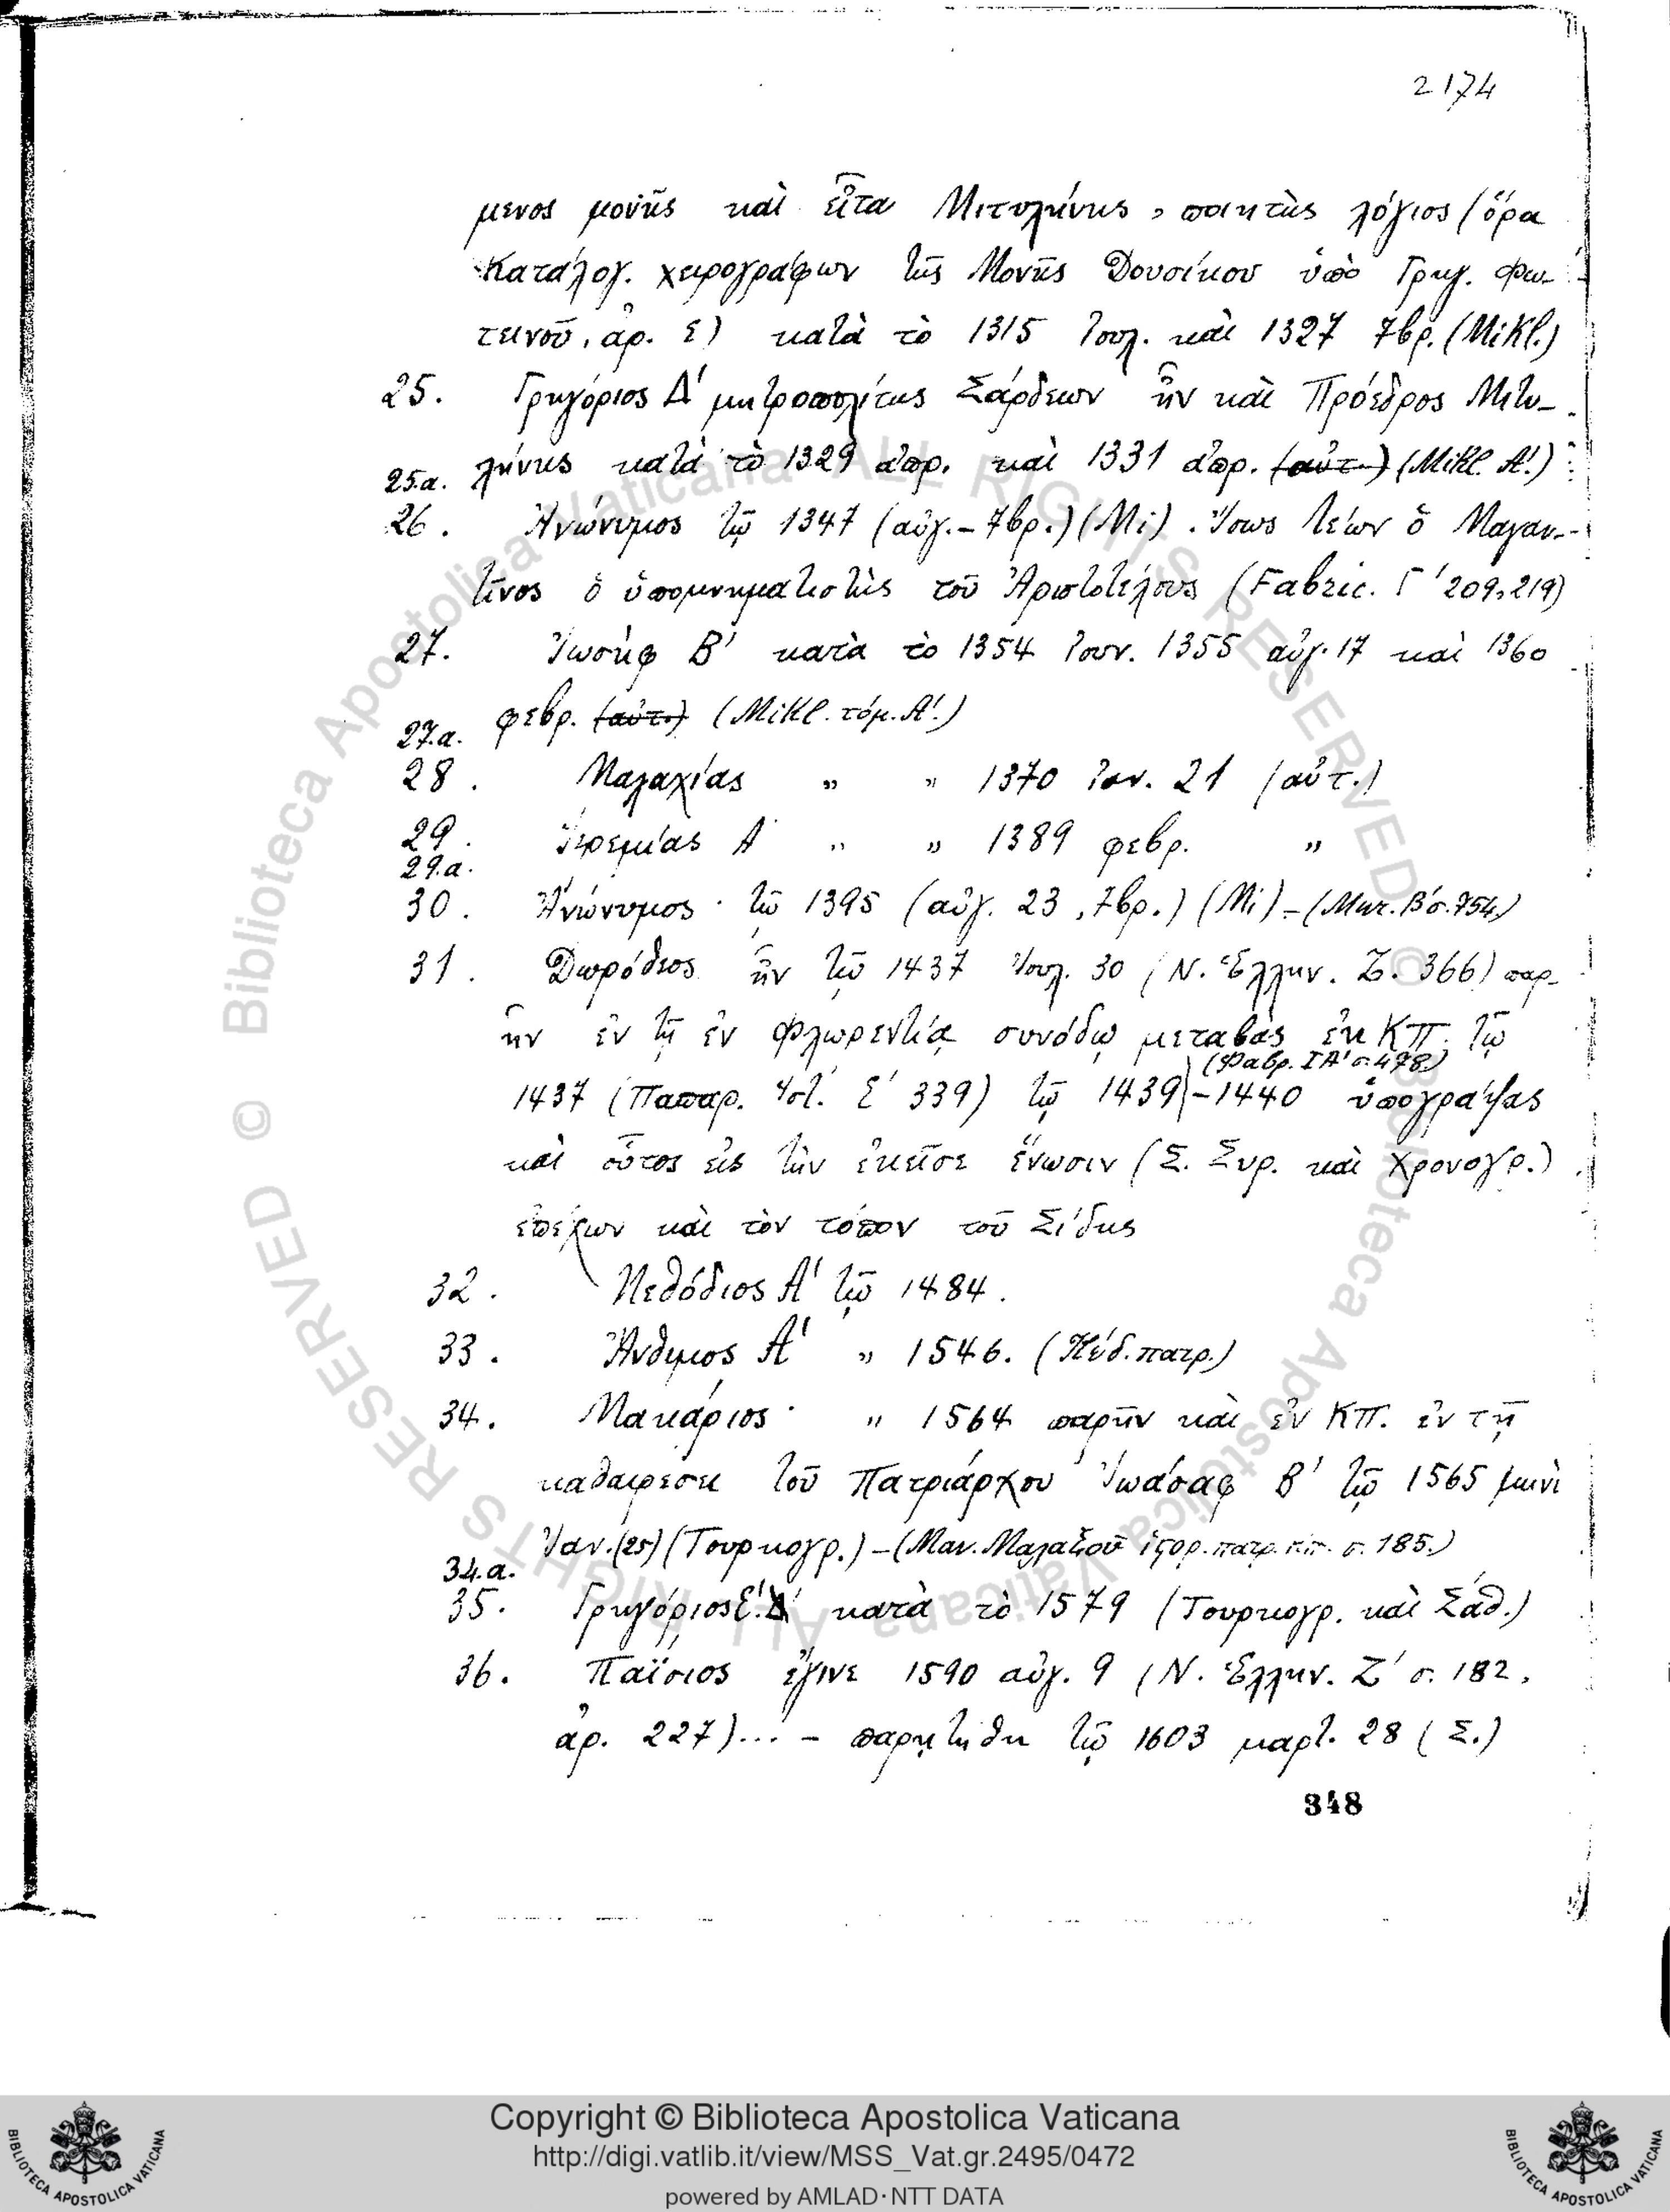 2174
μενος μονῆς καὶ εἶτα Μιτυλήνης, ποιητὴς λόγιος (ὅρα
Κατάλογ. χειρογράφων τῆς Μονῆς Δουσίκου ὑπὸ Γρηγ. Φω-
τεινοῦ, ἀρ. ε) κατὰ τὸ 1315 Ἰουλ. καὶ 1327 7βρ. (Mikl.)
25. Γρηγόριος Δ' μητροπολίτης Σάρδεων ἦν καὶ Πρόεδρος Μιτυ-
25.α. λήνης κατὰ τὸ 1329 ἀπρ. καὶ 1331 ἀπρ. (αὐτ.) (Mikl. Α'.)
26. Ἀνώνυμος τῷ 1347 (αὐγ.-7βρ.) (Mi). Ἴσως Λέων ὁ Μαγεν-
τῖνος ὁ ὑπομνηματιστὴς τοῦ Ἀριστοτέλους (Fabric. Γ' 209,219)
27. Ἰωσὴφ Β' κατὰ τὸ 1354 Ἰουν. 1355 αὐγ. 17 καὶ 1360
27.α. φεβρ. (αὐτ.) (Mikl. τόμ. Α'.)
28. Μαλαχίας „ „ 1370 Ἰαν. 21 (αὐτ.)
29. Ἱερεμίας Α „ „ 1389 φεβρ. „
29.α.
30. Ἀνώνυμος τῷ 1395 (αὐγ. 23, 7βρ.) (Mi) - (Μικ. Β' σ. 754)
31. Δωρόθεος ἦν τῷ 1437 Ἰουλ. 30 (Ν. Ἑλλην. Ζ. 366) παρ-
ῆν ἐν τῇ ἐν Φλωρεντίᾳ συνόδῳ μεταβὰς ἐκ ΚΠ. τῷ
(Φαβρ. ΙΑ' σ. 478)
1437 (Παπαρ. Ἱστ. Ε' 339) τῷ 1439-1440 ὑπογράψας
καὶ οὗτος εἰς τὴν ἐκεῖσε ἕνωσιν (Σ. Συρ. καὶ Χρονογρ.)
ἐπέχων καὶ τὸν τόπον τοῦ Σίδης
32. Μεθόδιος Α' τῷ 1484.
33. Ἄνθιμος Α' „ 1546. (Κώδ. πατρ.)
34. Μακάριος „ 1564 παρῆν καὶ ἐν ΚΠ. ἐν τῇ
καθαιρέσει τοῦ Πατριάρχου Ἰωάσαφ Β' τῷ 1565 μηνὶ
Ἰαν. (25) (Τουρκογρ.) - (Μαν. Μαλαξοῦ ἱστορ. πατρ. Κπ. σ. 185.)
34.α.
35. Γρηγόριος Ε'. Δ' κατὰ τὸ 1579 (Τουρκογρ. καὶ Σάθ.)
36. Παΐσιος ἔγινε 1590 αὐγ. 9 (Ν. Ἑλλην. Ζ' σ. 182,
ἀρ. 227)... - παρῃτήθη τῷ 1603 μαρτ. 28 (Σ.)
348
© Biblioteca Apostolica Vaticana ALL RIGHTS RESERVED © Biblioteca Apostolica Vaticana ALL RIGHTS RESERVED
BIBLIOTECA APOSTOLICA VATICANA
Copyright © Biblioteca Apostolica Vaticana
http://digi.vatlib.it/view/MSS_Vat.gr.2495/0472
powered by AMLAD·NTT DATA
BIBLIOTECA APOSTOLICA VATICANA